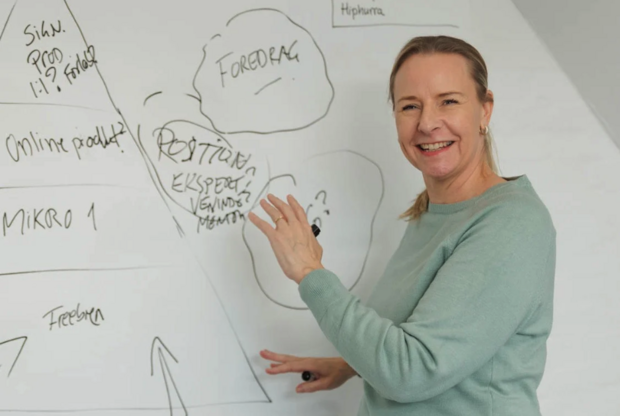 Hiphurra
SIGN.
PROD
1:1?
FOREDRAG
Online produkt?
POSITION
EKSPERT?
VENINDE?
MENTOR
MIKRO 1
Freebien